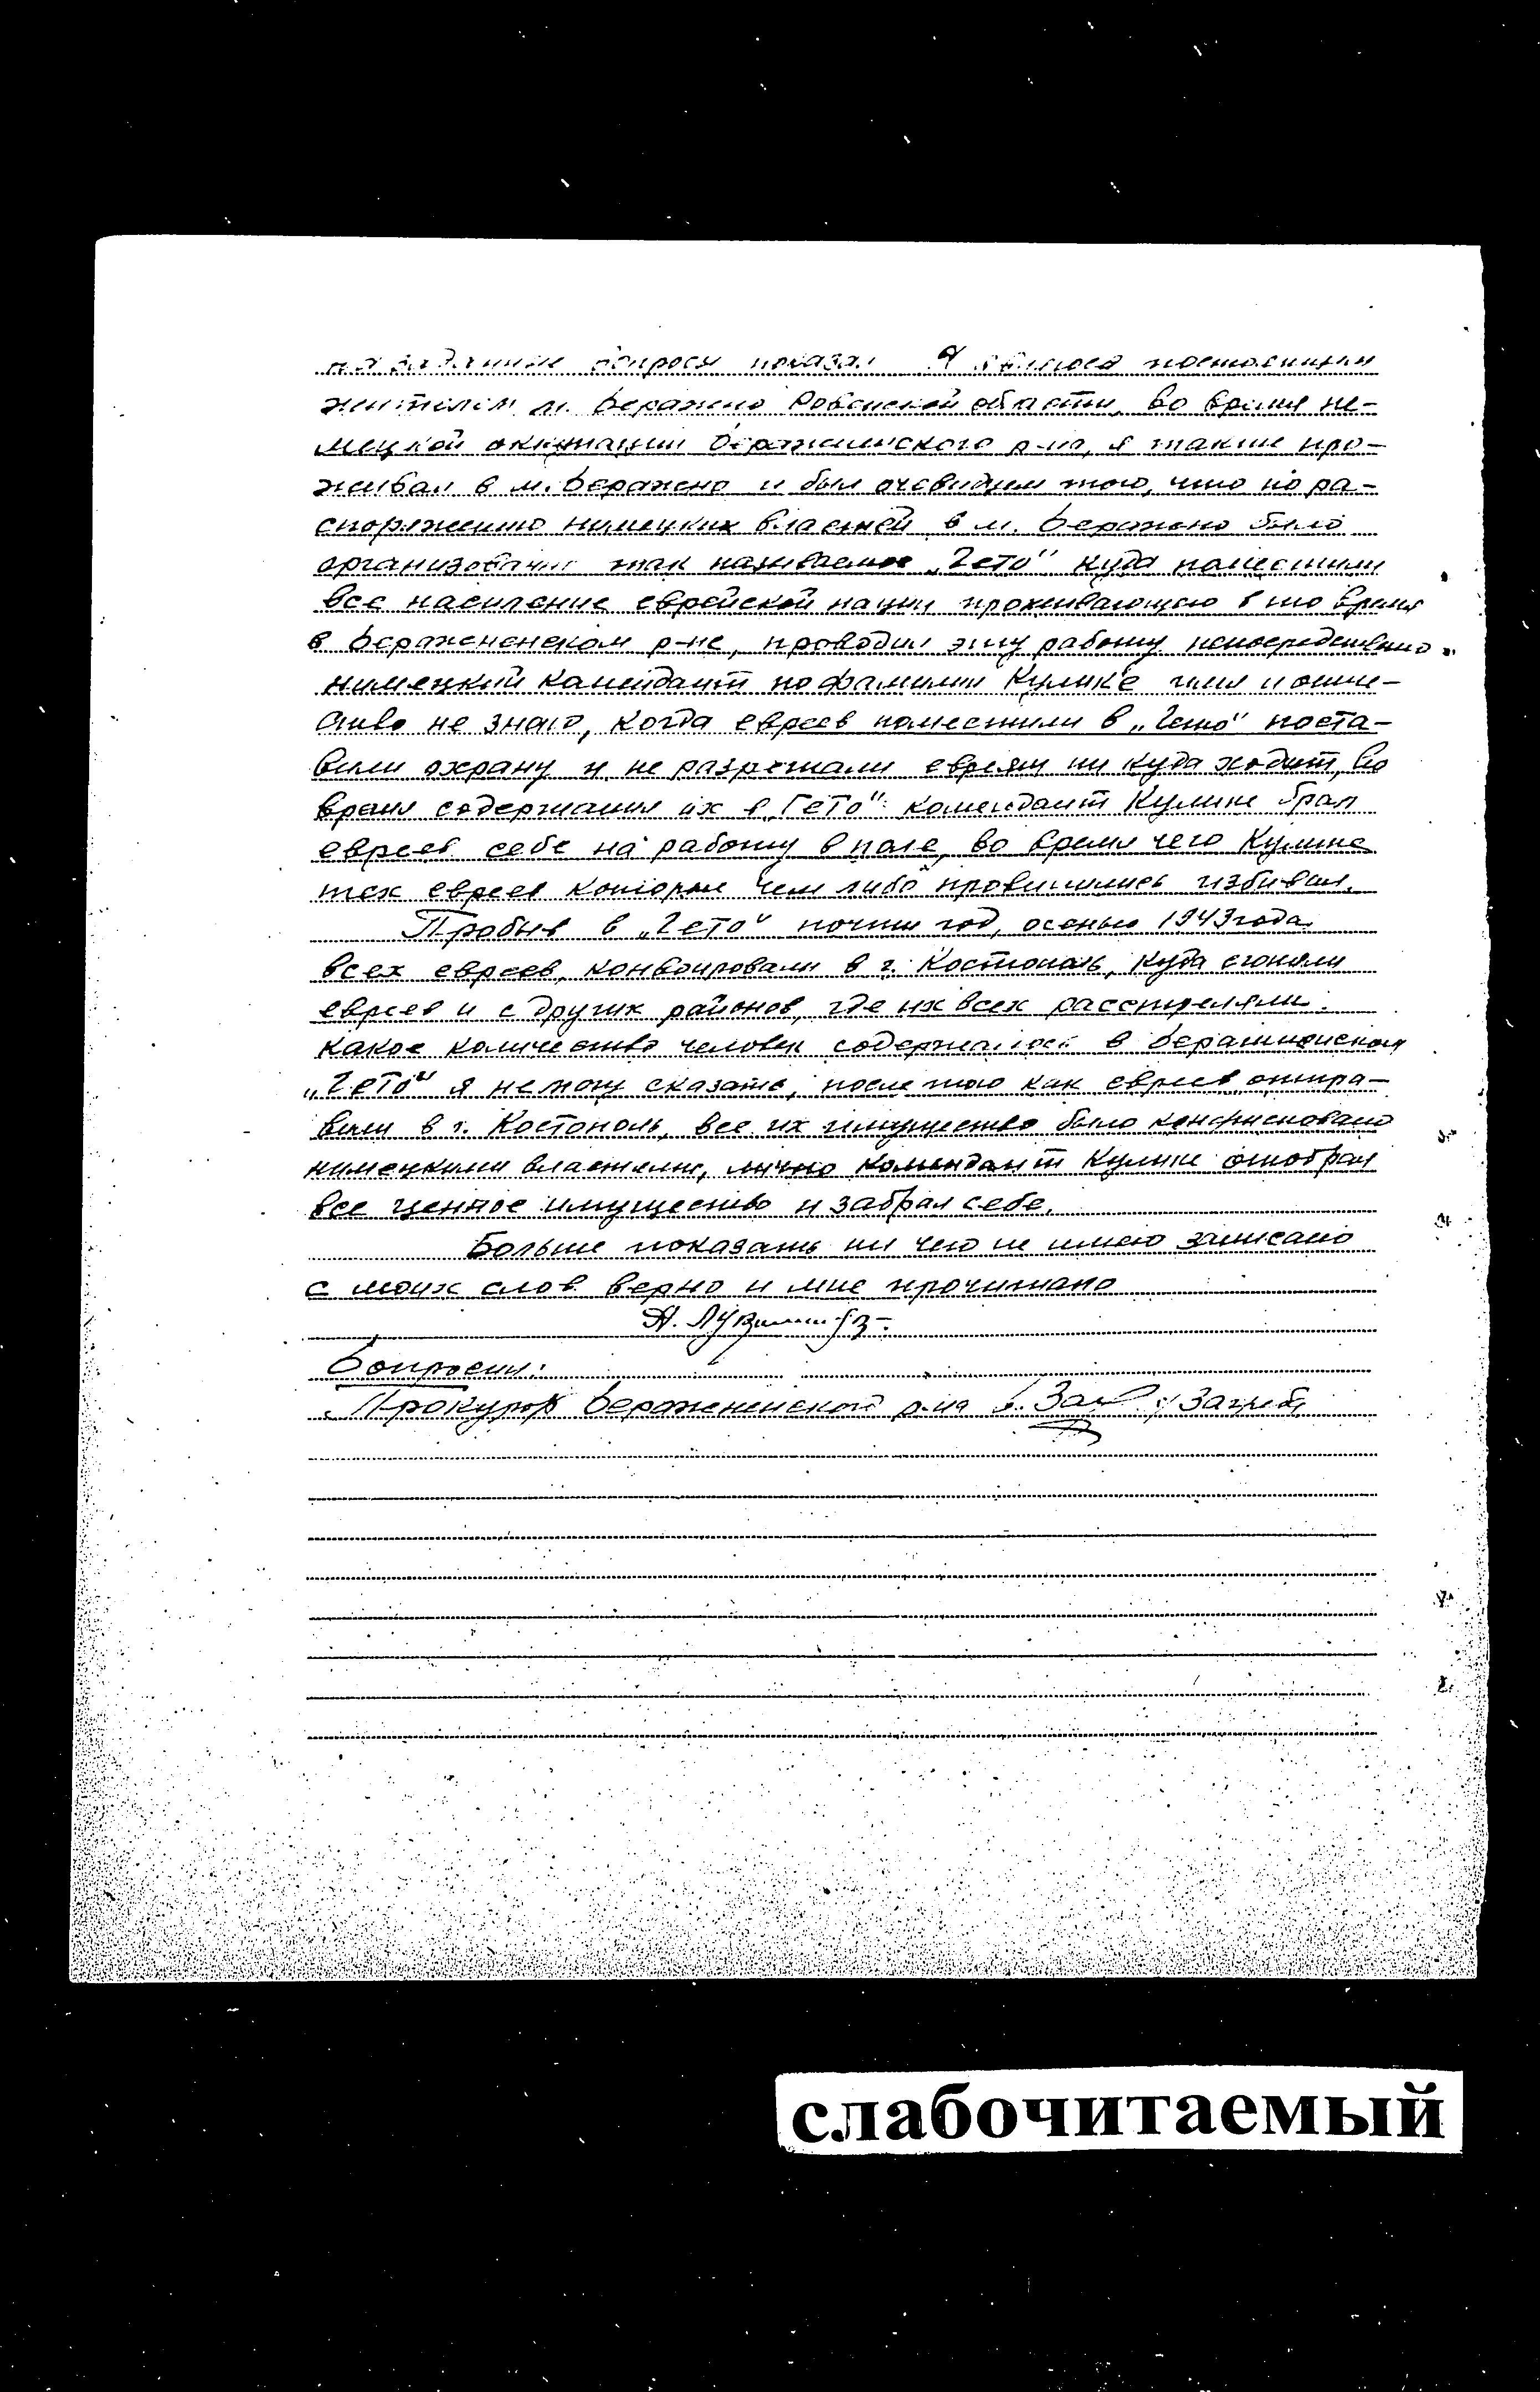 на заданные вопросы показал Я являюся постоянным
жителем м. Бережно Ровенской области, во время не-
мецкой оккупации Бережненского р-на, я также про-
живал в м. Бережно и был очевидцем того, что по ра-
споряжению нимецких властей в м. Бережно было
организовано так называемое „Гето" куда поместили
все население еврейской нации проживающего в то время
в Бережненском р-не, проводил эту работу непосредственно
нимецкий комендант по фамилии Кулике имя и отче-
ство не знаю, когда евреев поместили в „Гето" поста-
вили охрану и не разрешали евреям ни куда ходит, во
время содержания их в „Гето" комендант Кулике брал
евреев себе на работу в поле, во время чего Кулике
тех евреев которые чем либо провинились избивал.
Пробыв в „Гето" почти год, осенью 1943 года
всех евреев, конвоировали в г. Костополь, куда сгоняли
евреев и с других районов, где их всех расстреляли.
Какое количество человек содержалось в Бережненском
„Гето" я не могу сказать, после того как евреев отпра-
вили в г. Костополь, все их имущество было конфисковано
нимецкими властями, лично комендант Кулике отобрал
все ценное имущество и забрал себе.
Больше показать ни чего не имею записано
с моих слов верно и мне прочитано
А.
Допросил:
Прокурор Бережненского р-на
слабочитаемый